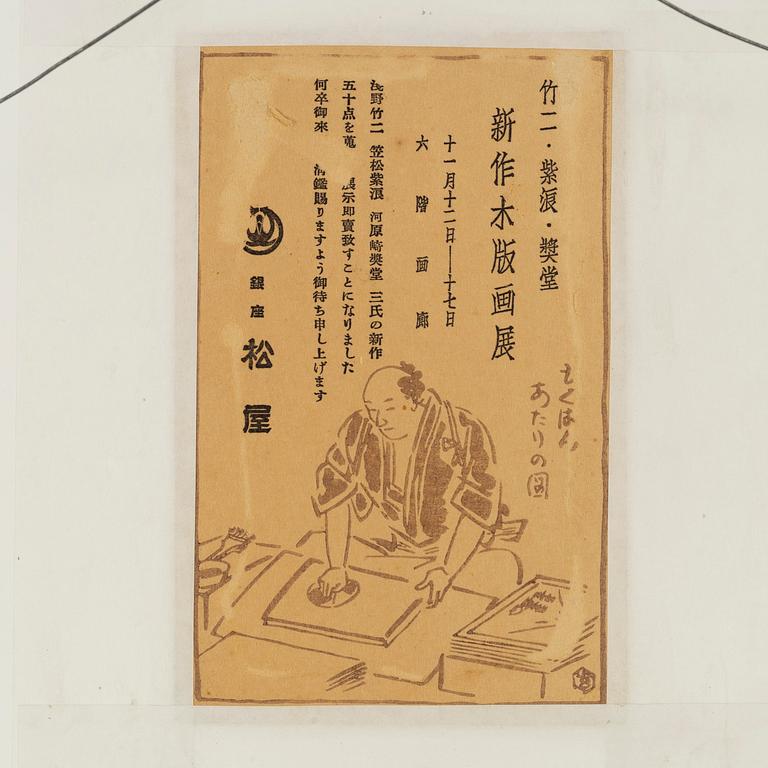 竹二・紫浪・奨堂
新作木版画展
十一月十二日――十七日
六階画廊
浅野竹二 笠松紫浪 河原崎奨堂 三氏の新作
五十点を蒐 展示即賣致すことになりました
何卒御来 清鑑賜りますよう御待ち申し上げます
銀座
松屋
もくはん
あたりの図